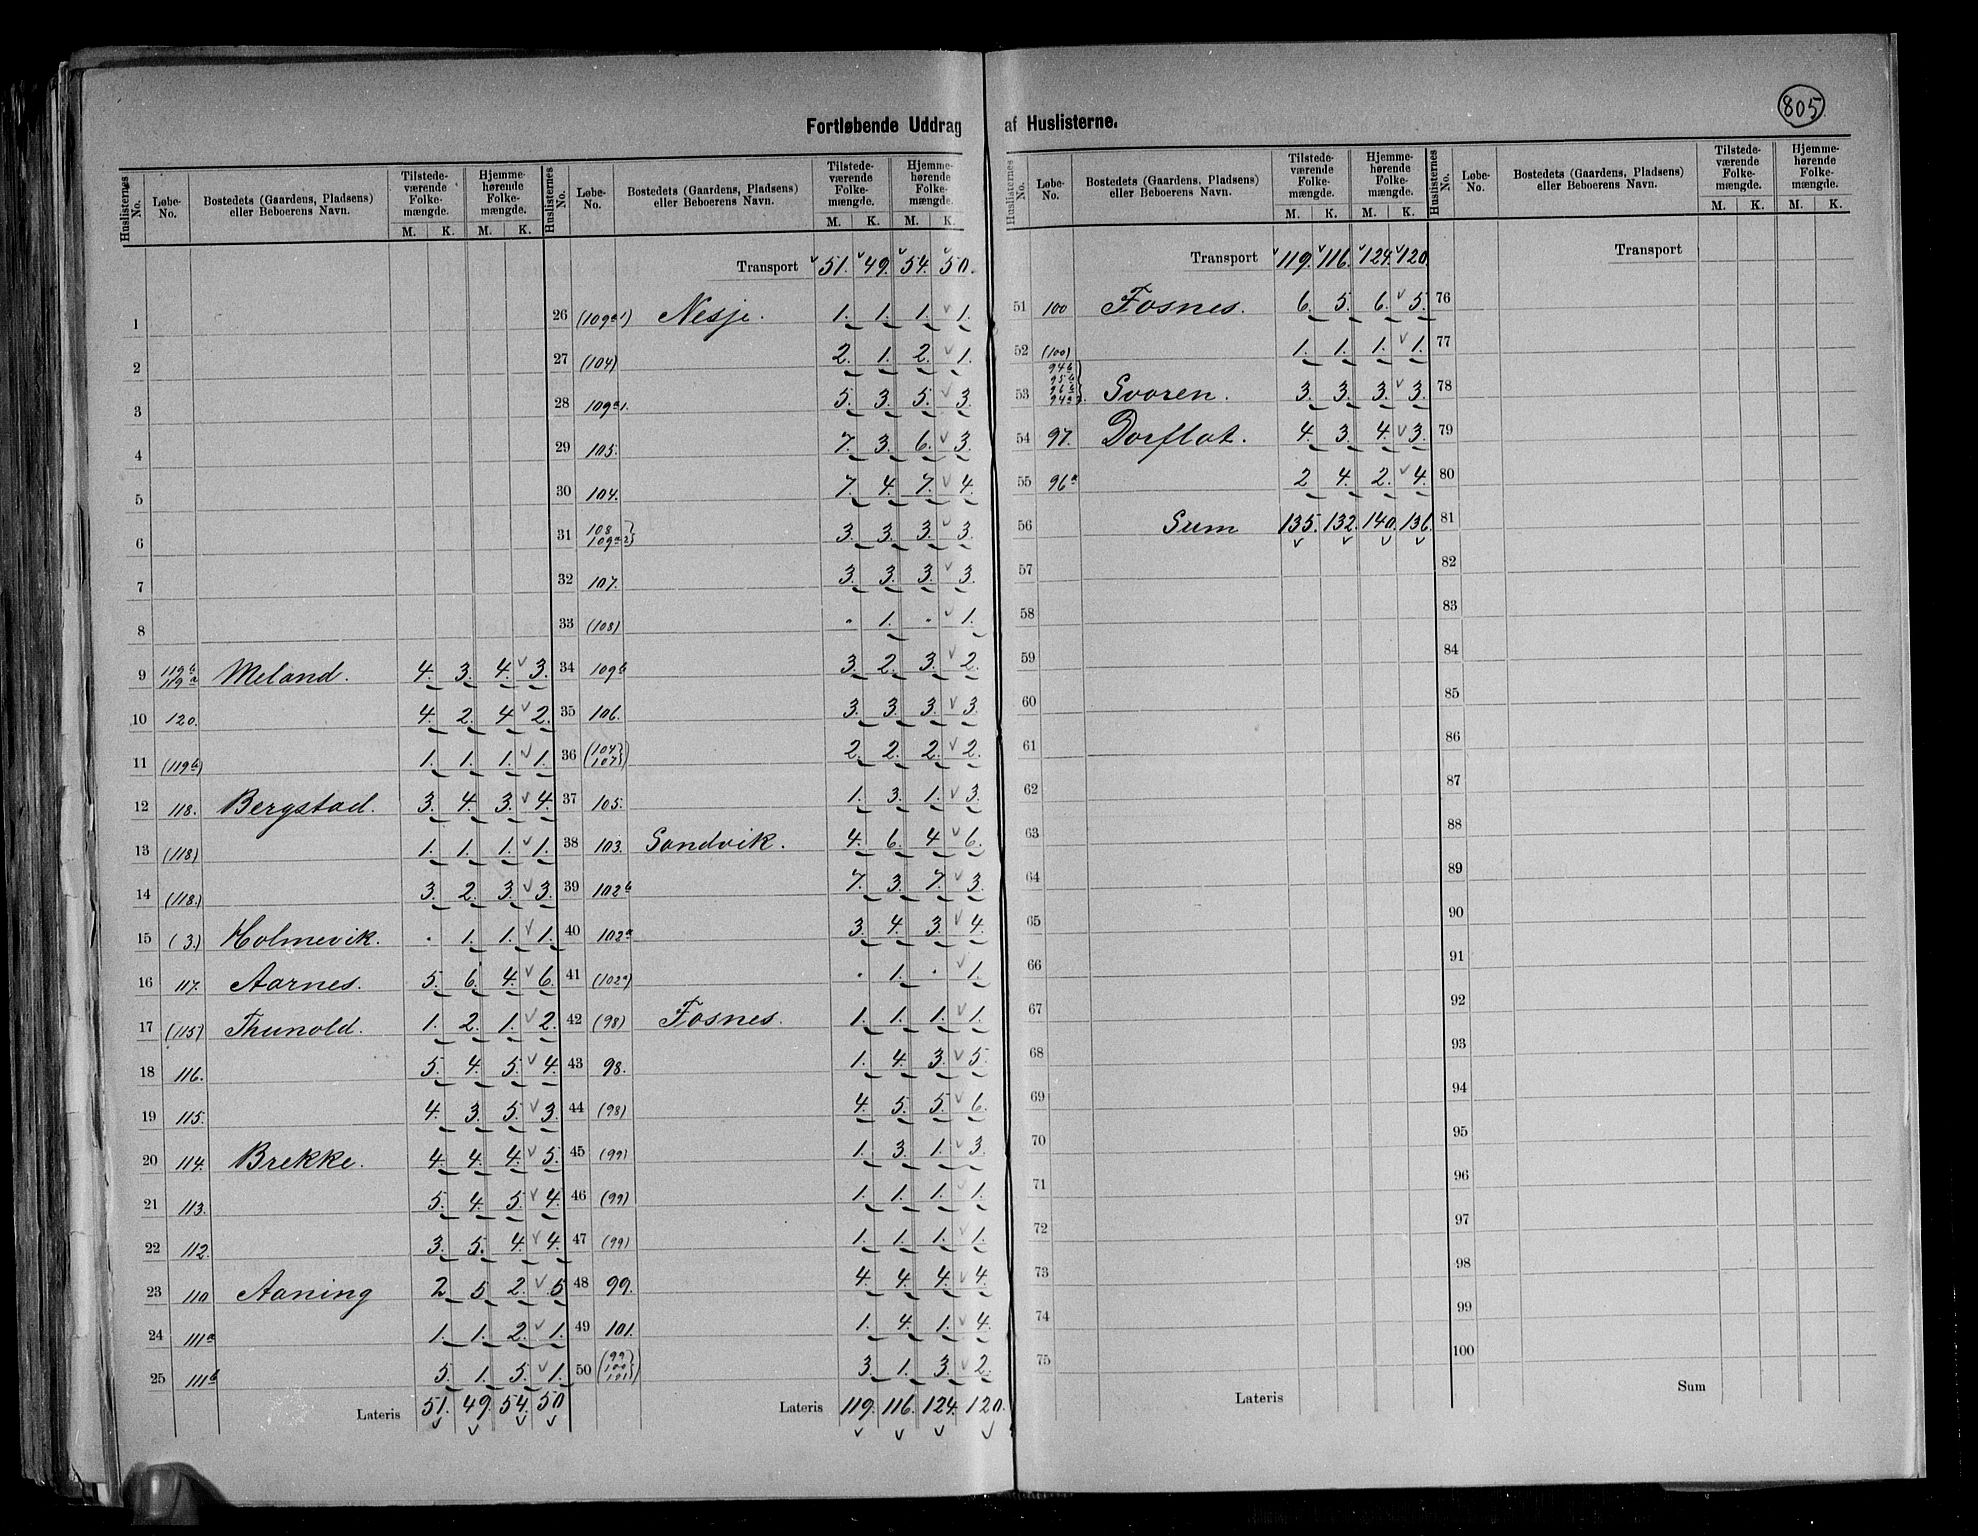 805
Fortløbende Uddrag af Huslisterne.
Huslisternes No. Løbe-No. Bostedets (Gaardens, Pladsens) eller Beboerens Navn. Tilstede-værende Folke-mængde. Hjemme-hørende Folke-mængde.
M. K. M. K.
1
2
3
4
5
6
7
8
9 119b 119a Meland. 4. 3. 4. 3.
10 120. 4. 2. 4. 2.
11 (119b) 1. 1. 1. 1.
12 118. Bergstad. 3. 4. 3. 4.
13 (118) 1. 1. 1. 1.
14 (118.) 3. 2. 3. 3.
15 (3.) Holmevik. . 1. 1. 1.
16 117. Aarnes. 5. 6. 4. 6.
17 (115) Thunold. 1. 2. 1. 2.
18 116. 5. 4. 5. 4.
19 115. 4. 3. 5. 3.
20 114. Brekke. 4. 4. 4. 5.
21 113. 5. 4. 5. 4.
22 112. 3. 5. 4. 4.
23 110 Aaning 2 5 2. 5
24 111a 1. 1. 2. 1.
25 111b 5. 1. 5. 1.
Lateris 51. 49 54. 50
Huslisternes No. Løbe-No. Bostedets (Gaardens, Pladsens) eller Beboerens Navn. Tilstede-værende Folke-mængde. Hjemme-hørende Folke-mængde.
M. K. M. K.
Transport 51. 49. 54. 50.
26 (109a1) Nesje. 1. 1. 1. 1.
27 (104) 2. 1. 2. 1.
28 109a1. 5. 3. 5. 3.
29 105. 7. 3. 6. 3.
30 104. 7. 4. 7. 4.
31 108 109a2} 3. 3. 3. 3.
32 107. 3. 3. 3. 3.
33 (108) . 1. . 1.
34 109b 3. 2. 3. 2.
35 106. 3. 3. 3. 3.
36 (104 107}) 2. 2. 2. 2.
37 105. 1. 3. 1. 3.
38 103. Sandvik. 4. 6. 4 6.
39 102b 7. 3. 7. 3.
40 102a 3. 4. 3. 4.
41 (102a) . 1. . 1.
42 (98) Fosnes. 1. 1. 1. 1.
43 98. 1. 4. 3. 5.
44 (98) 4. 5. 5. 6.
45 (99) 1. 3. 1. 3.
46 (99) 1. 1. 1. 1.
47 (99) 1. 1. 1. 1.
48 99. 4. 4. 4. 4.
49 101. 1. 4. 1. 4.
50 (99 100 101}) 3 1. 3. 2.
Lateris 119. 116. 124. 120.
Huslisternes No. Løbe-No. Bostedets (Gaardens, Pladsens) eller Beboerens Navn. Tilstede-værende Folke-mængde. Hjemme-hørende Folke-mængde.
M. K. M. K.
Transport 119. 116. 124. 120
51 100 Fosnes. 6. 5. 6. 5.
52 (100) 1. 1. 1. 1.
53 94b 95b 96b 94a2.} Svoren. 3. 3. 3. 3.
54 97. Dorflot. 4. 3. 4. 3.
55 96a 2 4. 2. 4.
56 Sum 135. 132. 140. 136.
57
58
59
60
61
62
63
64
65
66
67
68
69
70
71
72
73
74
75
Lateris
Huslisternes No. Løbe-No. Bostedets (Gaardens, Pladsens) eller Beboerens Navn. Tilstede-værende Folke-mængde. Hjemme-hørende Folke-mængde.
M. K. M. K.
Transport
76
77
78
79
80
81
82
83
84
85
86
87
88
89
90
91
92
93
94
95
96
97
98
99
100
Sum